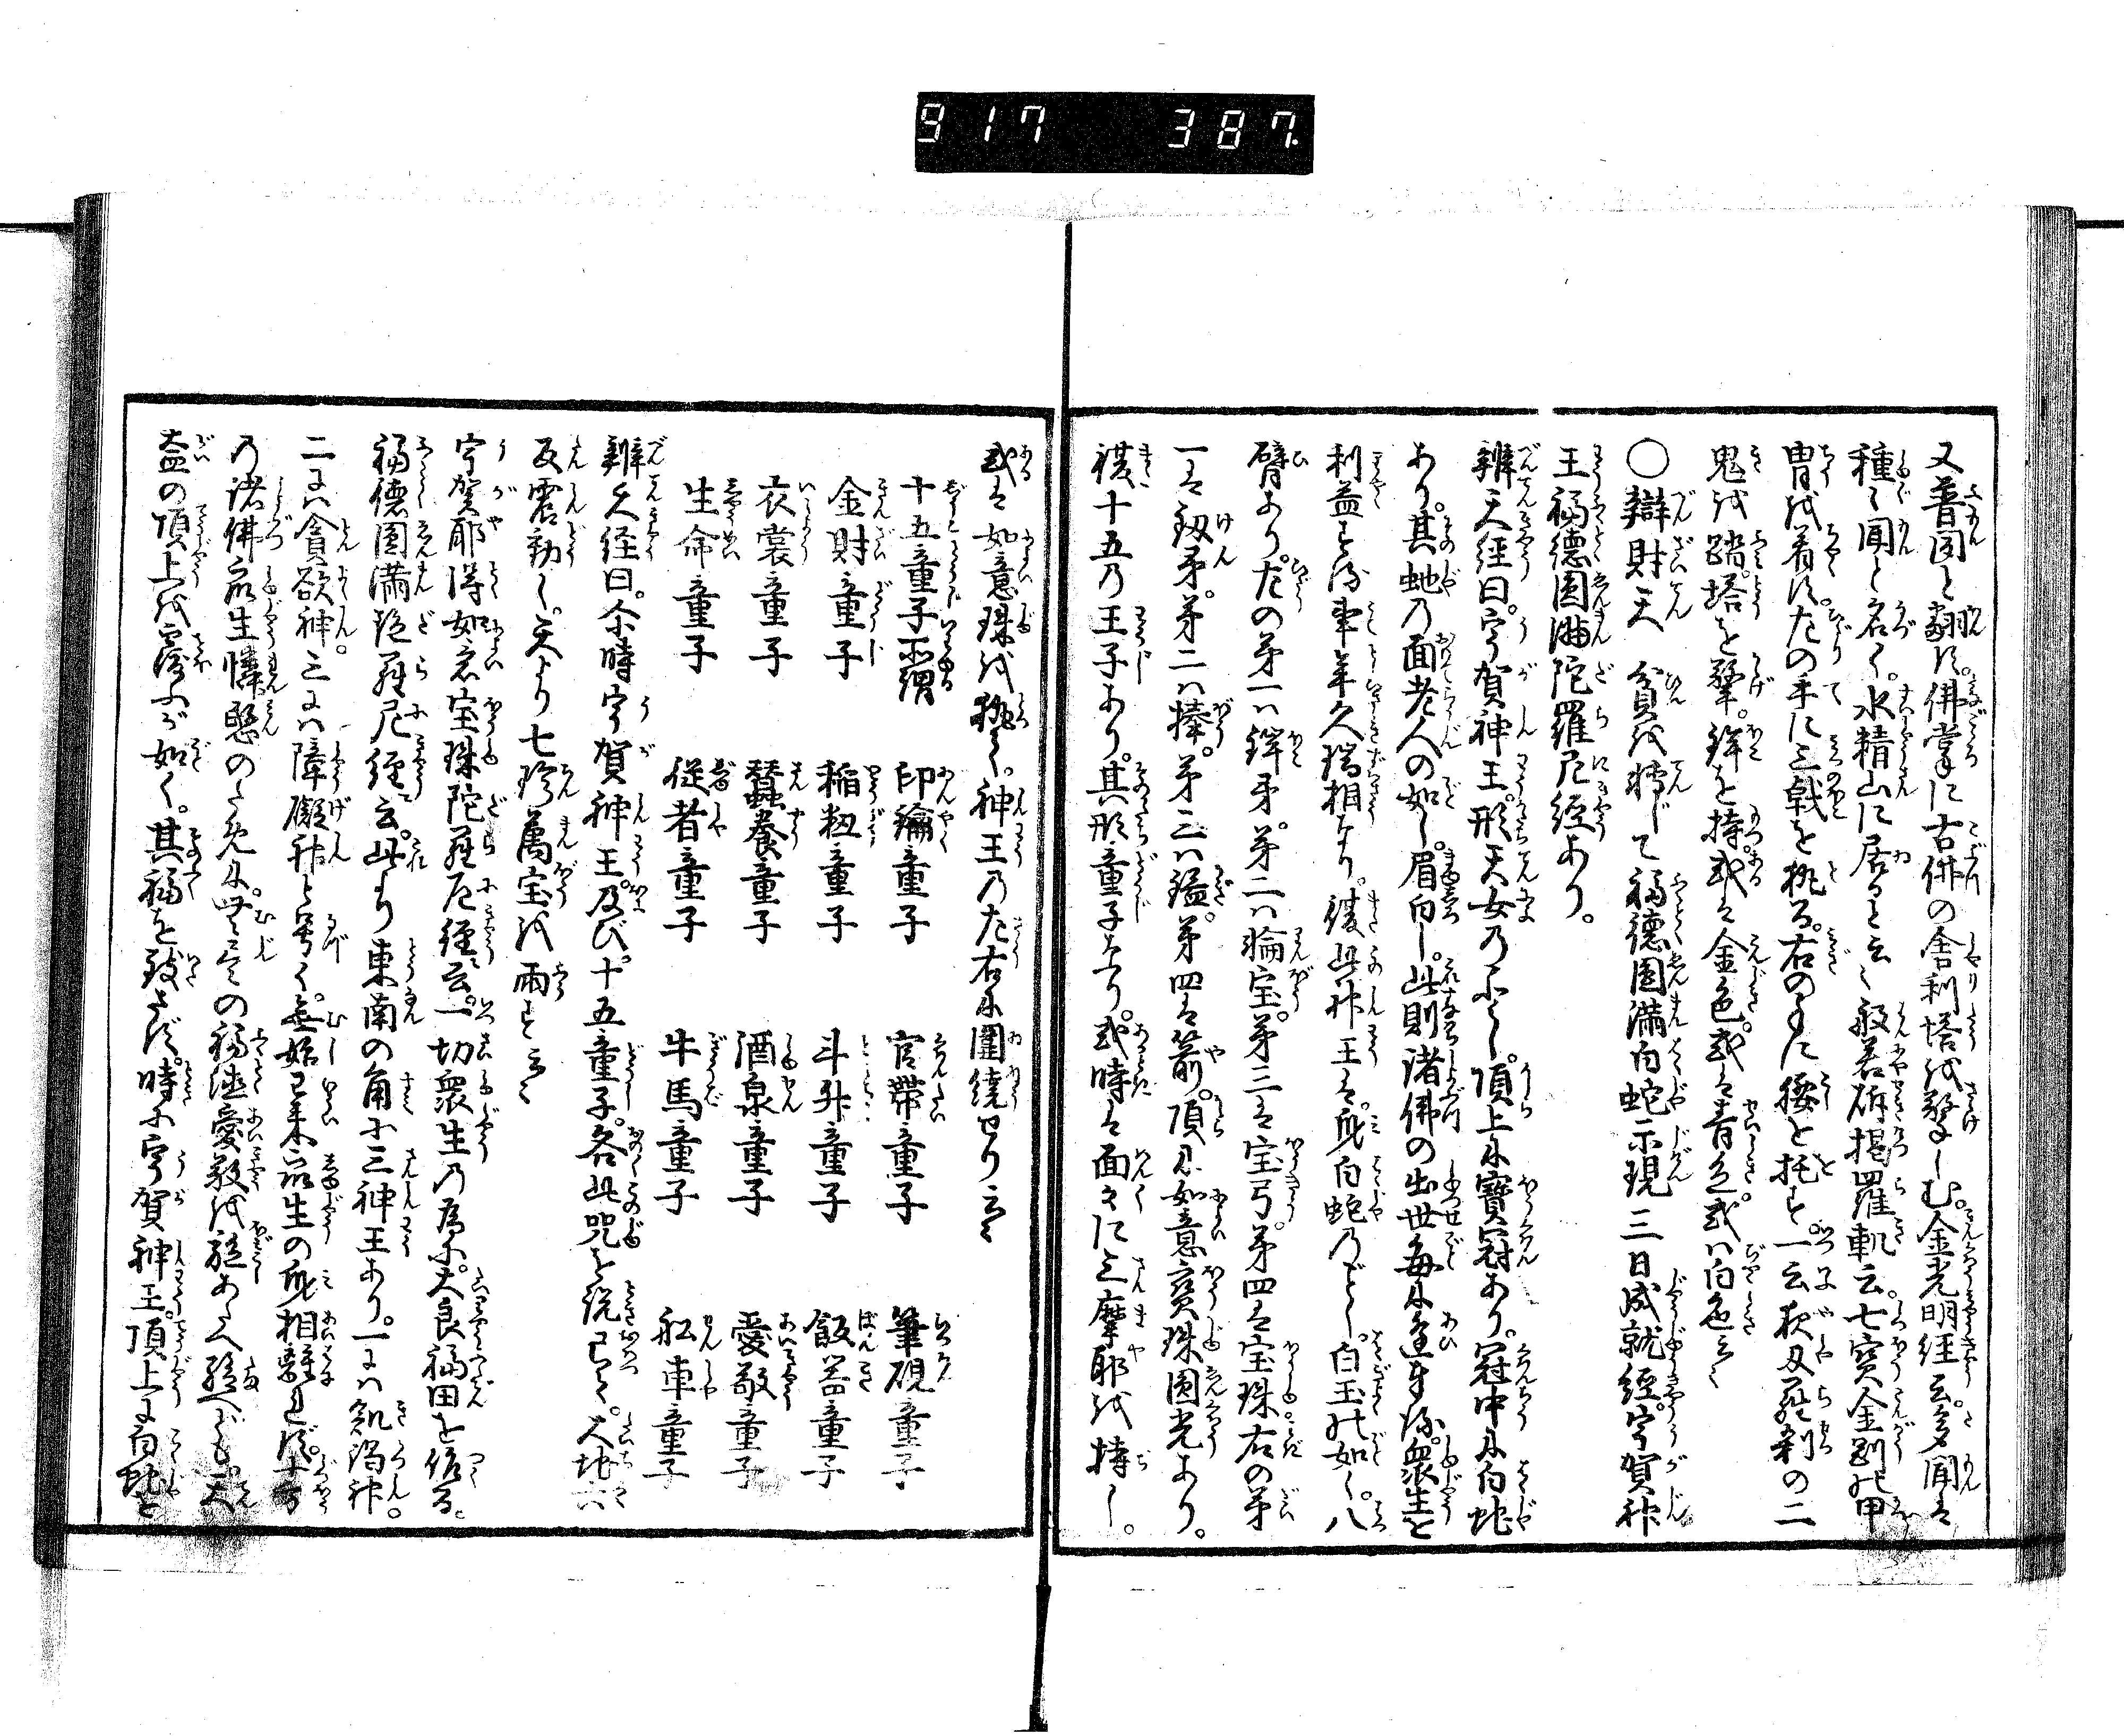 917 387.
又普聞と翻ず。佛掌に古佛の舎利塔を擎しむ。金光明経云。多聞は
種々聞と名く。水精山に居ると云々 般若斫掲羅軌云。七寳金剛の甲
冑を着す。左の手に三戟を執る。右の手に腰を托す。一云夜叉羅刹の二
鬼を踏。塔を擎。鉾を持。或は金色。或は青色。或は白色云々
○辯財天 貧を轉じて福徳圓満白蛇示現三日成就経。宇賀神
王福徳圓満陀羅尼経あり。
辨天経曰。宇賀神王。形天女のごとし。頂上に寶冠あり。冠中に白蛇
あり。其蛇の面老人の如し。眉白し。此則諸佛の出世毎に逢奉る。衆生を
利益する事年久瑞相なり。復此神王は。身白蛇のごとし。白玉の如く。八
臂あり。左の第一は鉾。第二は輪宝。第三は宝弓。第四は宝珠。右の第
一は釼。第二は棒。第三は鎰。第四は箭。頂に如意寶珠圓光あり。
復十五の王子あり。其形童子なり。或時は面々に三摩耶を持し。
或は如意珠を執る。神王の左右に圍繞せり云々
十五童子所謂 印鑰童子 官帶童子 筆硯童子
金財童子 稲籾童子 斗舛童子 飯器童子
衣裳童子 蠶養童子 酒泉童子 愛敬童子
生命童子 従者童子 牛馬童子 舩車童子
辨天経曰。尓時宇賀神王。及び。十五童子。各此咒を説已て。天地六
反震動し。天より七珍萬宝を雨す云々
宇賀耶得如意宝珠陀羅尼経云。一切衆生の為に。大良福田を作る。
福徳圓満陀羅尼経云。此より東南の角に三神王あり。一には飢渇神。
二には貪欲神。三には障礙神と号く。無始已来衆生の身相離れず。十方
の諸佛衆生憐愍のために。無尽の福徳愛敬を施あたへ給へども。大
盆の頂上を覆ふが如く。其福を致さず。時に宇賀神王。頂上に白蛇を